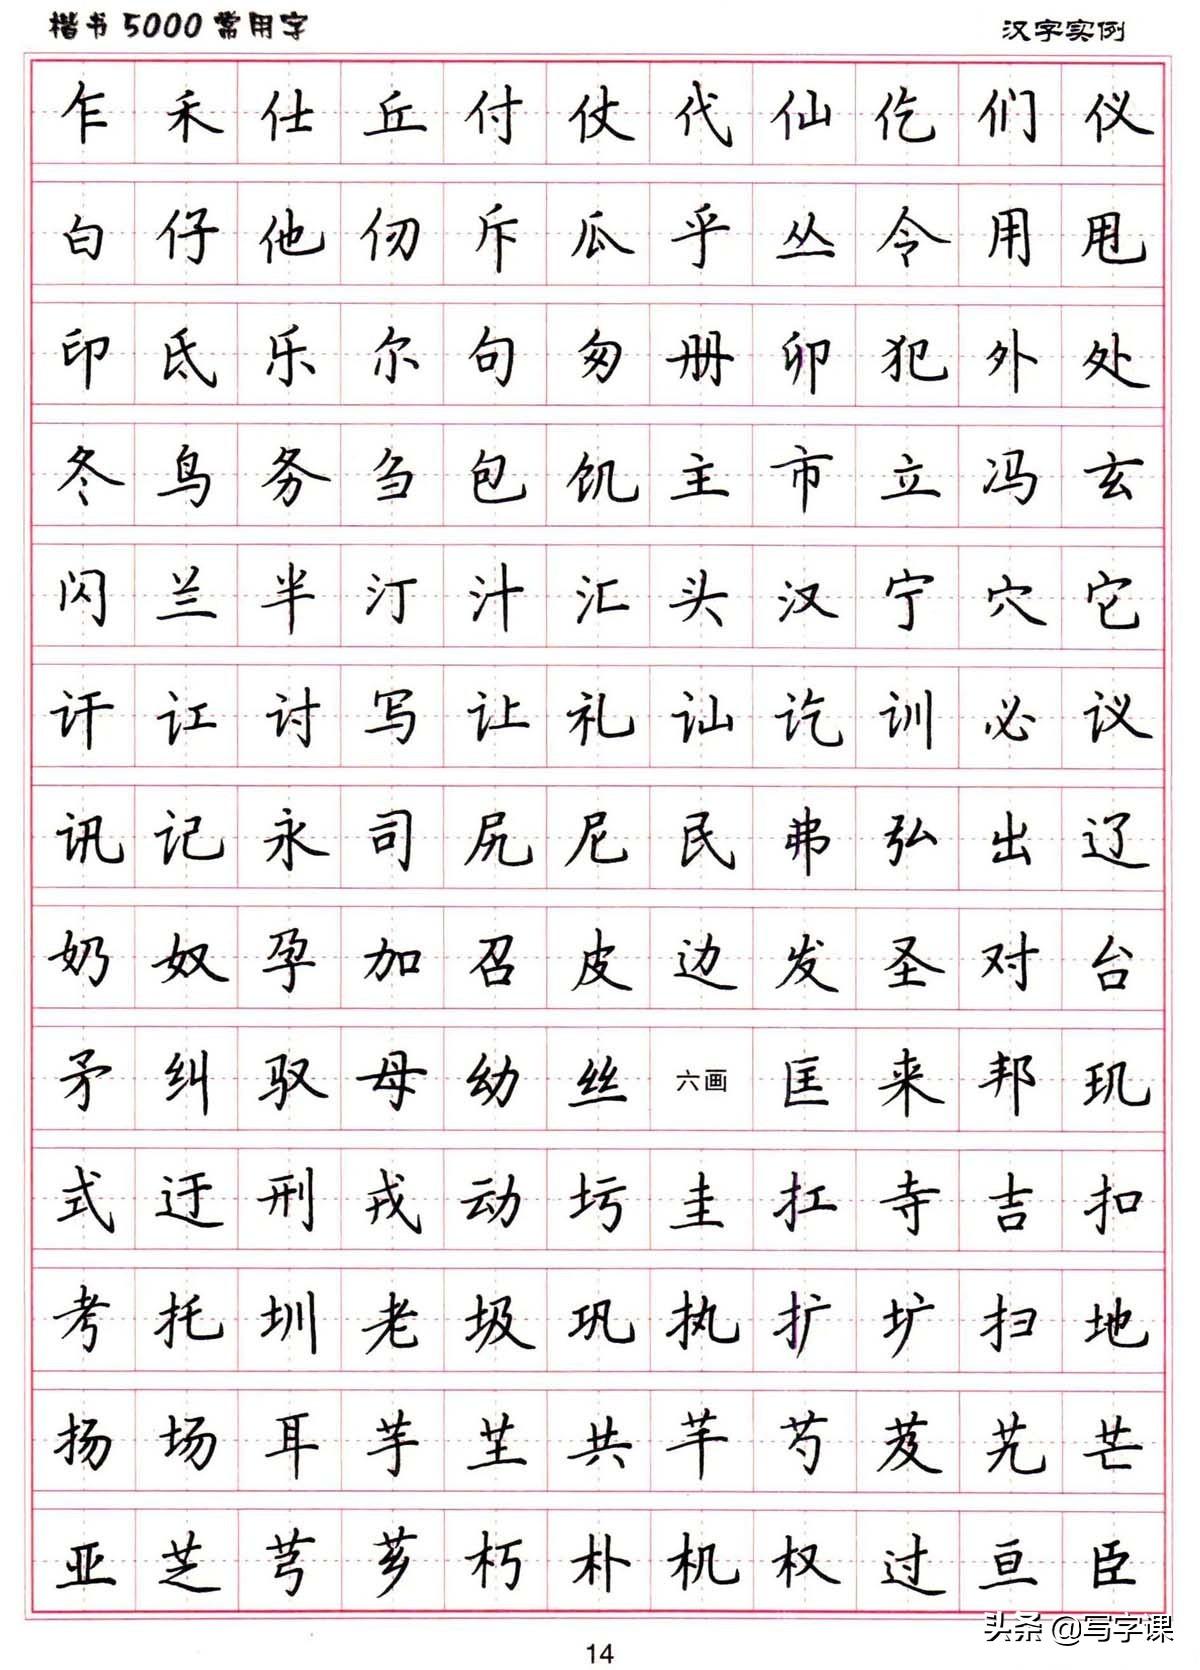 楷书5000常用字 汉字实例
乍 禾 仕 丘 付 仗 代 仙 仡 们 仪
白 仔 他 仞 斥 瓜 乎 丛 令 用 甩
印 氐 乐 尔 句 匆 册 卯 犯 外 处
冬 鸟 务 刍 包 饥 主 市 立 冯 玄
闪 兰 半 汀 汁 汇 头 汉 宁 穴 它
讦 讧 讨 写 让 礼 讪 讫 训 必 议
讯 记 永 司 尻 尼 民 弗 弘 出 辽
奶 奴 孕 加 召 皮 边 发 圣 对 台
矛 纠 驭 母 幼 丝 六画 匡 来 邦 玑
式 迂 刑 戎 动 圬 圭 扛 寺 吉 扣
考 托 圳 老 圾 巩 执 扩 圹 扫 地
扬 场 耳 芋 芏 共 芊 芍 芨 艽 芒
亚 芝 芎 芗 朽 朴 机 权 过 亘 臣
头条 @写字课
14